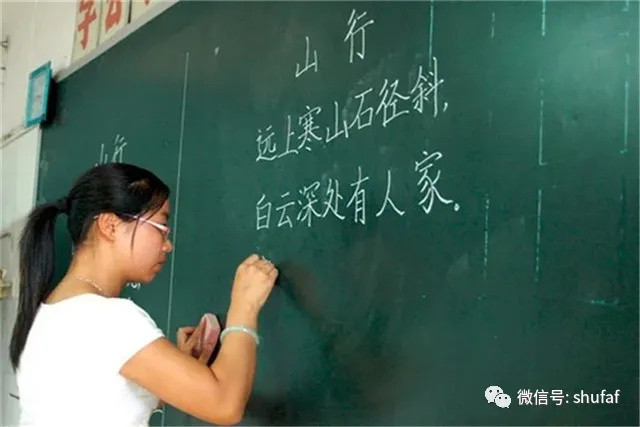 山行
远上寒山石径斜，
白云深处有人家。
山行
微信号: shufaf